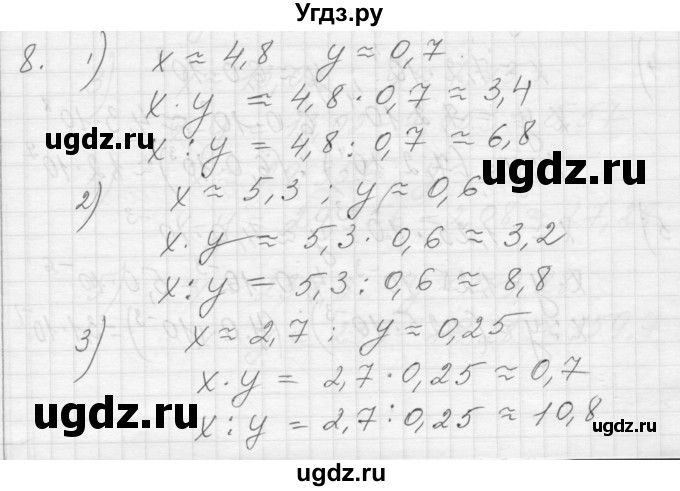 Угдз.ру
8. 1) x ≈ 4,8 y ≈ 0,7
x · y = 4,8 · 0,7 ≈ 3,4
ugdz.ru
ugdz.ru
x : y = 4,8 : 0,7 ≈ 6,8
ugdz.ru
2) x ≈ 5,3 ; y ≈ 0,6
x · y ≈ 5,3 · 0,6 ≈ 3,2
x : y = 5,3 : 0,6 ≈ 8,8
ugdz.ru
3) x ≈ 2,7 ; y ≈ 0,25
x · y = 2,7 · 0,25 ≈ 0,7
ugdz.ru
x : y = 2,7 : 0,25 ≈ 10,8
ugdz.ru
ugdz.ru